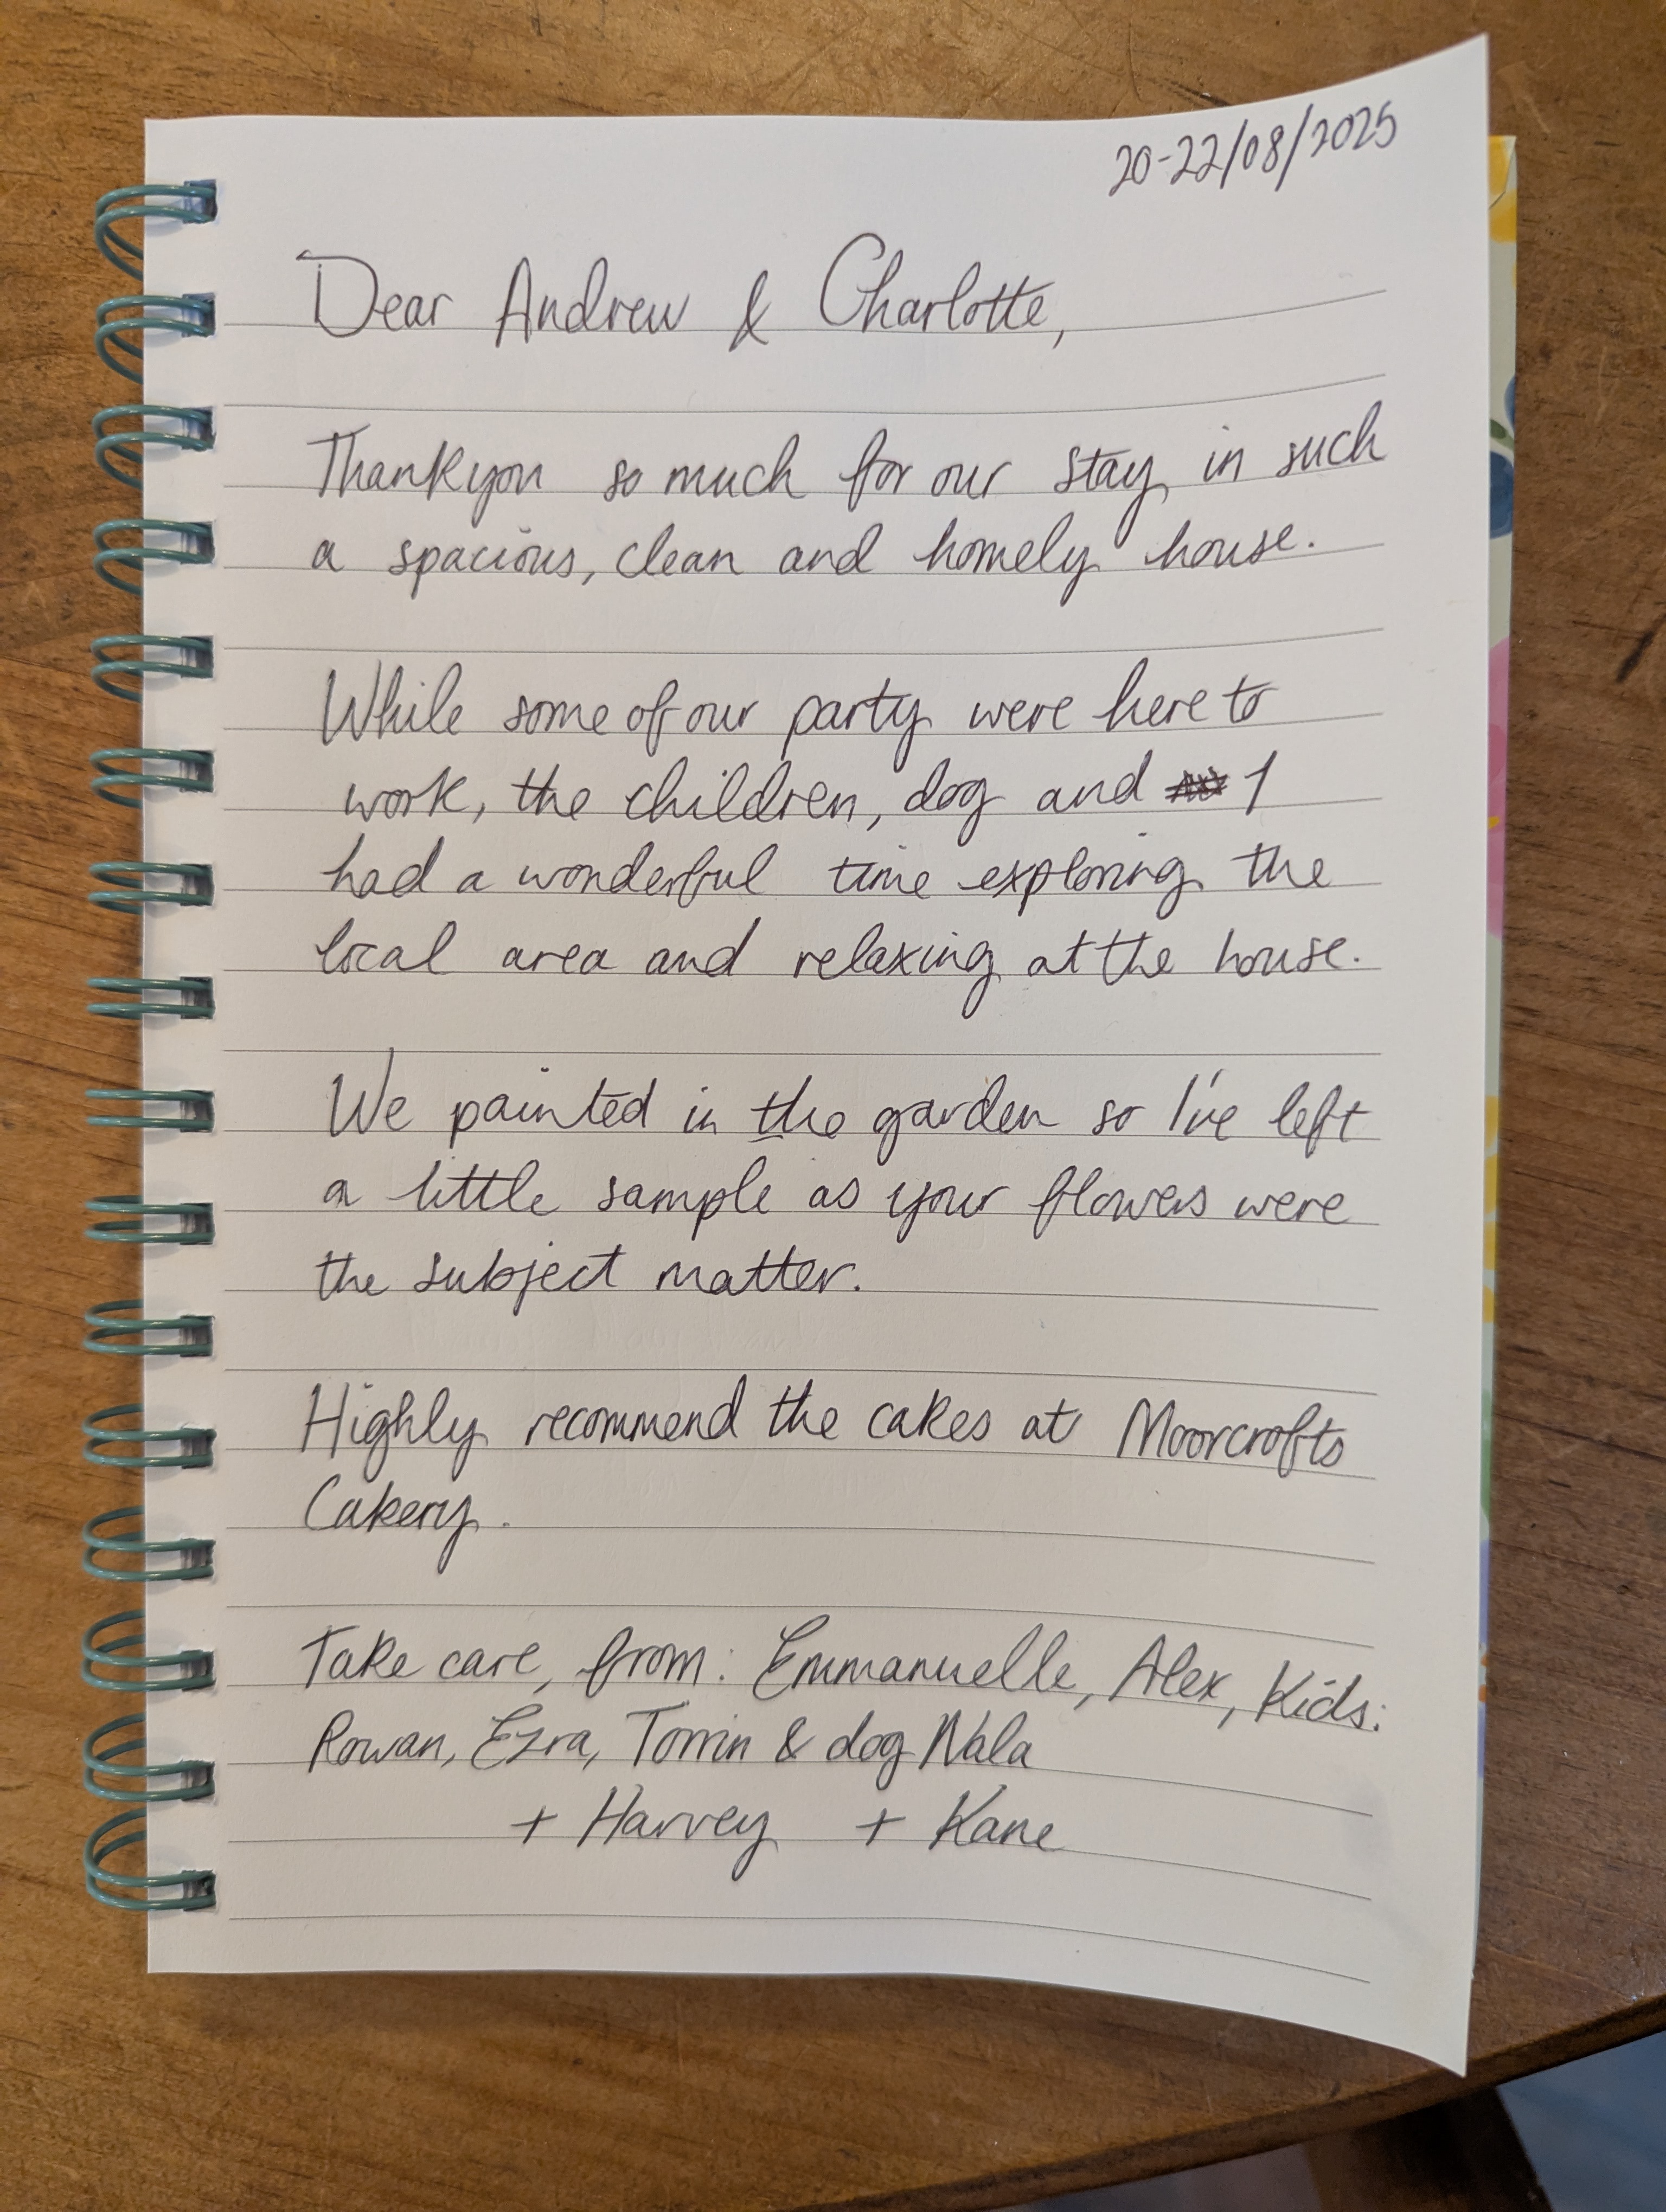 20-22/08/2025
Dear Andrew & Charlotte,
Thankyou so much for our stay in such
a spacious, clean and homely house.
While some of our party were here to
work, the children, dog and I
had a wonderful time exploring the
local area and relaxing at the house.
We painted in the garden so I've left
a little sample as your flowers were
the subject matter.
Highly recommend the cakes at Moorcrofts
Cakery.
Take care, from: Emmanuelle, Alex, Kids:
Rowan, Ezra, Torrin & dog Nala
+ Harvey + Kane